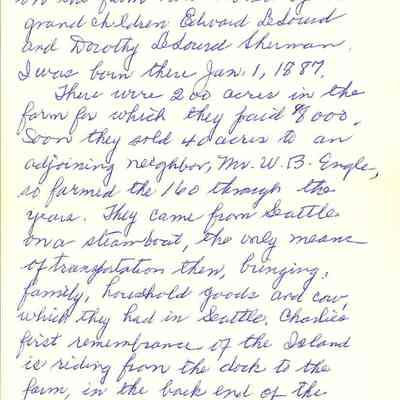 grandchildren Edward LeSourd
and Dorothy LeSourd Sherman.
I was born there Jan. 1, 1887.
There were 200 acres in the
farm for which they paid $8000.
Soon they sold 40 acres to an
adjoining neighbor, Mr. W. B. Engle,
so farmed the 160 through the
years. They came from Seattle
on a steamboat, the only means
of transportation then, bringing,
family, household goods and cow,
which they had in Seattle. Charlie's
first remembrance of the Island
is riding from the dock to the
farm, in the back end of the